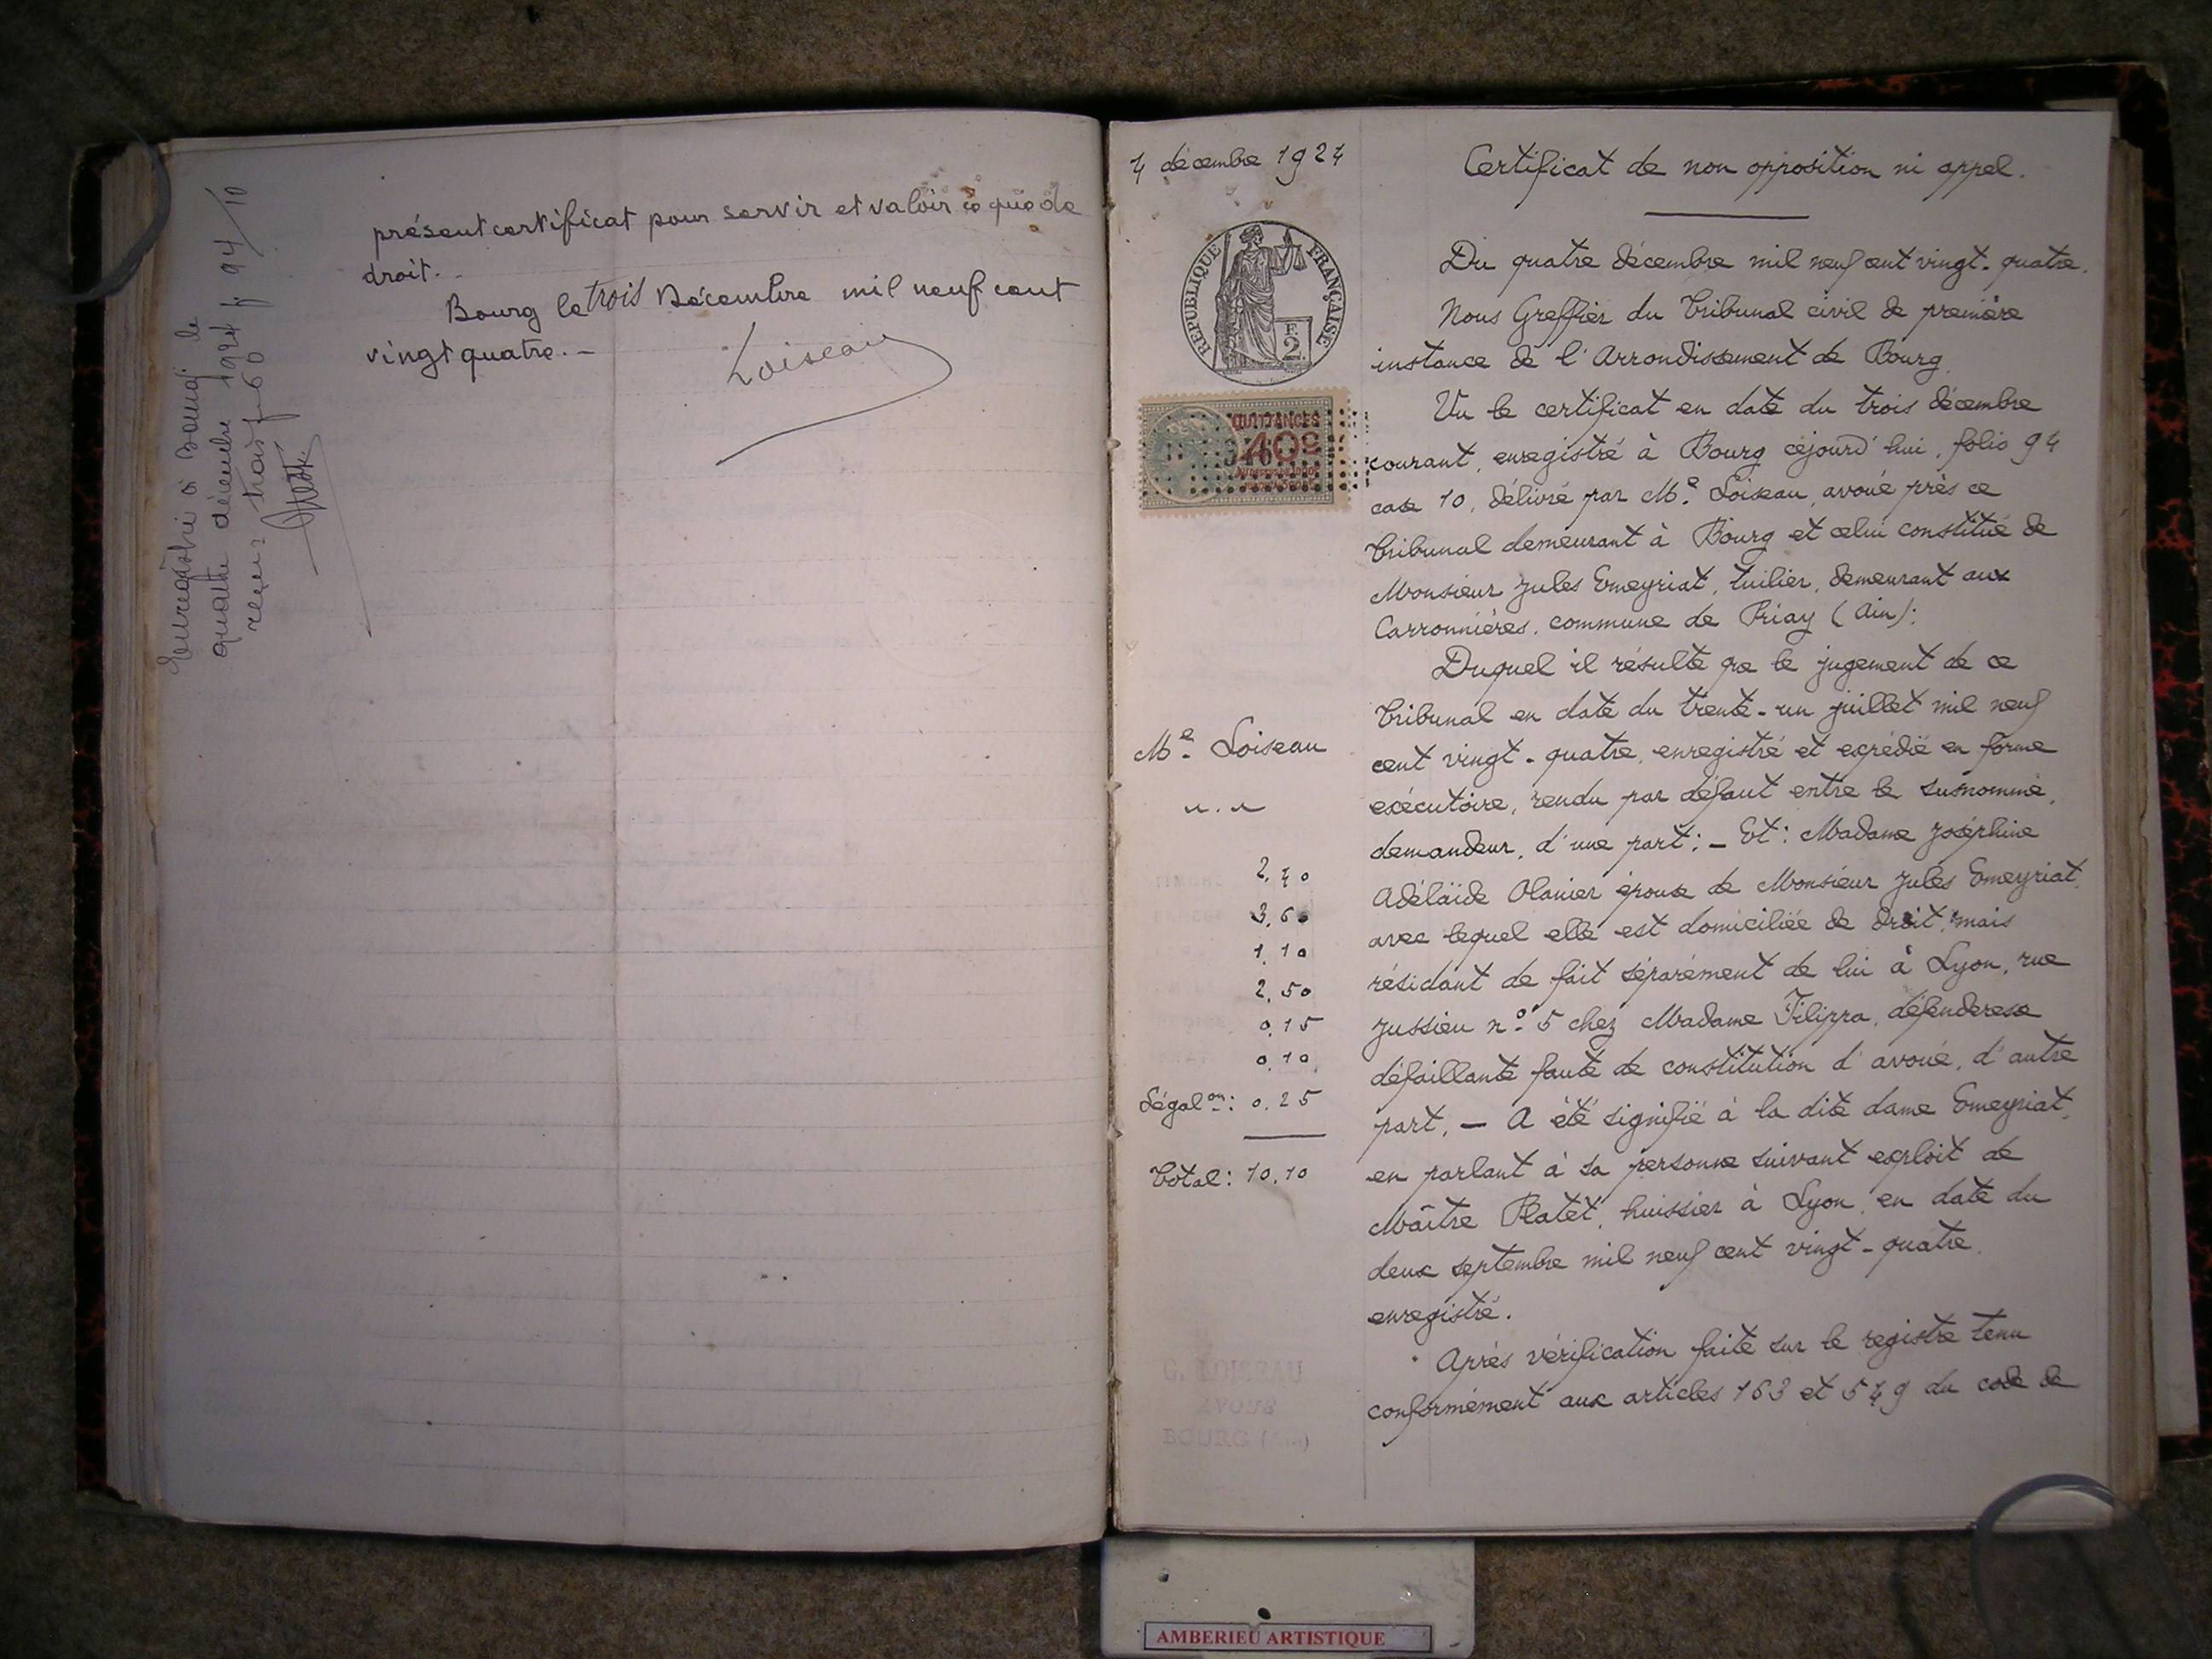 présent certificat pour servir et valoir ce que de
droit.
Bourg le trois Décembre mil neuf cent
vingt quatre. —
Loiseau
Enregistré à Bourg le
quatre décembre 1924 f. 94 / 10
reçu : trois f 60
4 décembre 1924
REPUBLIQUE FRANÇAISE
F.
2
QUITTANCES
40c
Me Loiseau
2,40
3,60
1,10
2,50
0,15
0,10
Légalon : 0,25
Total : 10,10
G. LOISEAU
AVOUÉ
BOURG (Ain)
Certificat de non opposition ni appel.
Du quatre décembre mil neuf cent vingt-quatre.
Nous Greffier du Tribunal civil de première
instance de l'Arrondissement de Bourg.
Vu le certificat en date du trois décembre
courant, enregistré à Bourg cejourd'hui, folio 94
case 10, délivré par Me Loiseau, avoué près ce
Tribunal demeurant à Bourg et celui constitué de
Monsieur Jules Emeyriat, tuilier, demeurant aux
Carronnières, commune de Priay (Ain);
Duquel il résulte que le jugement de ce
Tribunal en date du trente-un juillet mil neuf
cent vingt-quatre, enregistré et expédié en forme
exécutoire, rendu par défaut entre le susnommé,
demandeur, d'une part; — Et : Madame Joséphine
Adélaïde Olanier épouse de Monsieur Jules Emeyriat,
avec lequel elle est domiciliée de droit, mais
résidant de fait séparément de lui à Lyon, rue
Jussieu no 5 chez Madame Filippa, défenderesse
défaillante faute de constitution d'avoué, d'autre
part, — A été signifié à la dite dame Emeyriat,
en parlant à sa personne suivant exploit de
Maître Platet, huissier à Lyon, en date du
deux septembre mil neuf cent vingt-quatre,
enregistré.
Après vérification faite sur le registre tenu
conformément aux articles 163 et 549 du code de
AMBERIEU ARTISTIQUE